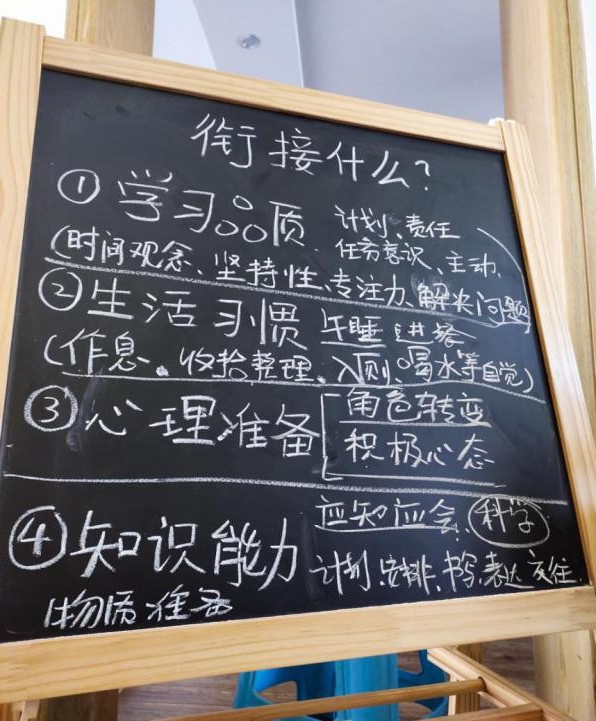 衔接什么?
①学习品质 计划、责任
任务意识、主动、
(时间观念、坚持性、专注力、解决问题
②生活习惯 午睡 进餐
(作息。收拾整理、入厕、喝水等自觉)
③心理准备 角色转变
积极心态
④知识能力 应知应会、科学
计划、安排、书写、表达、交往.
物质准备